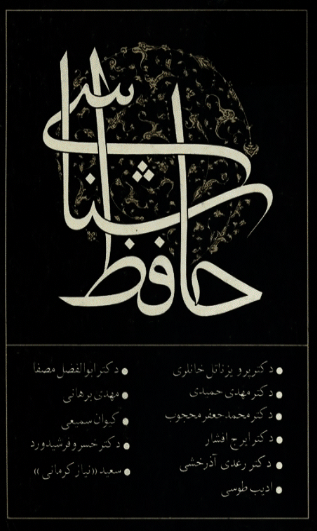 حافظ شناسی
دکتر پرویز ناتل خانلری
دکتر مهدی حمیدی
دکتر محمد جعفر محجوب
دکتر ایرج افشار
دکتر رعدی آذرخشی
ادیب طوسی
دکتر ابوالفضل مصفا
مهدی برهانی
کیوان سمیعی
دکتر خسرو فرشیدورد
سعید «نیاز کرمانی»